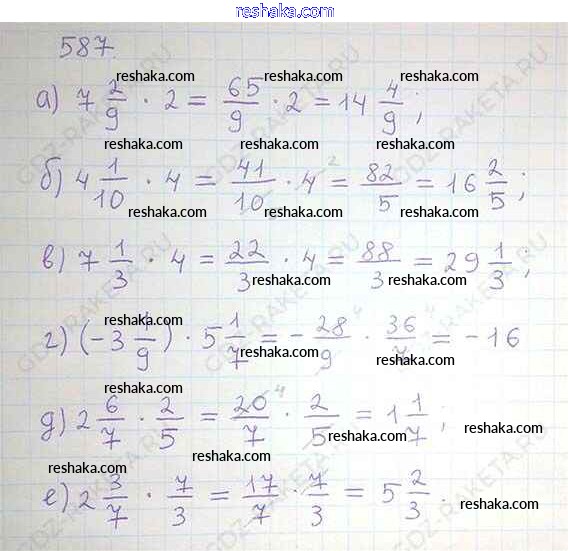 reshaka.com
587.
reshaka.com reshaka.com
а) 7 2/9 · 2 = 65/9 · 2 = 14 4/9;
reshaka.com reshaka.com reshaka.com
б) 4 1/10 · 4 = 41/10 · 4 2 = 82/5 = 16 2/5;
reshaka.com reshaka.com reshaka.com
в) 7 1/3 · 4 = 22/3 · 4 = 88/3 = 29 1/3;
reshaka.com reshaka.com reshaka.com
г) (-3 1/9) · 5 1/7 = - 28/9 4 · 36/7 4 = -16
reshaka.com reshaka.com reshaka.com
д) 2 6/7 · 2/5 = 20/7 4 · 2/5 = 1 1/7;
reshaka.com reshaka.com reshaka.com
е) 2 3/7 · 7/3 = 17/7 · 7/3 = 5 2/3.
reshaka.com reshaka.com reshaka.com
GDZ-RAKETA.RU